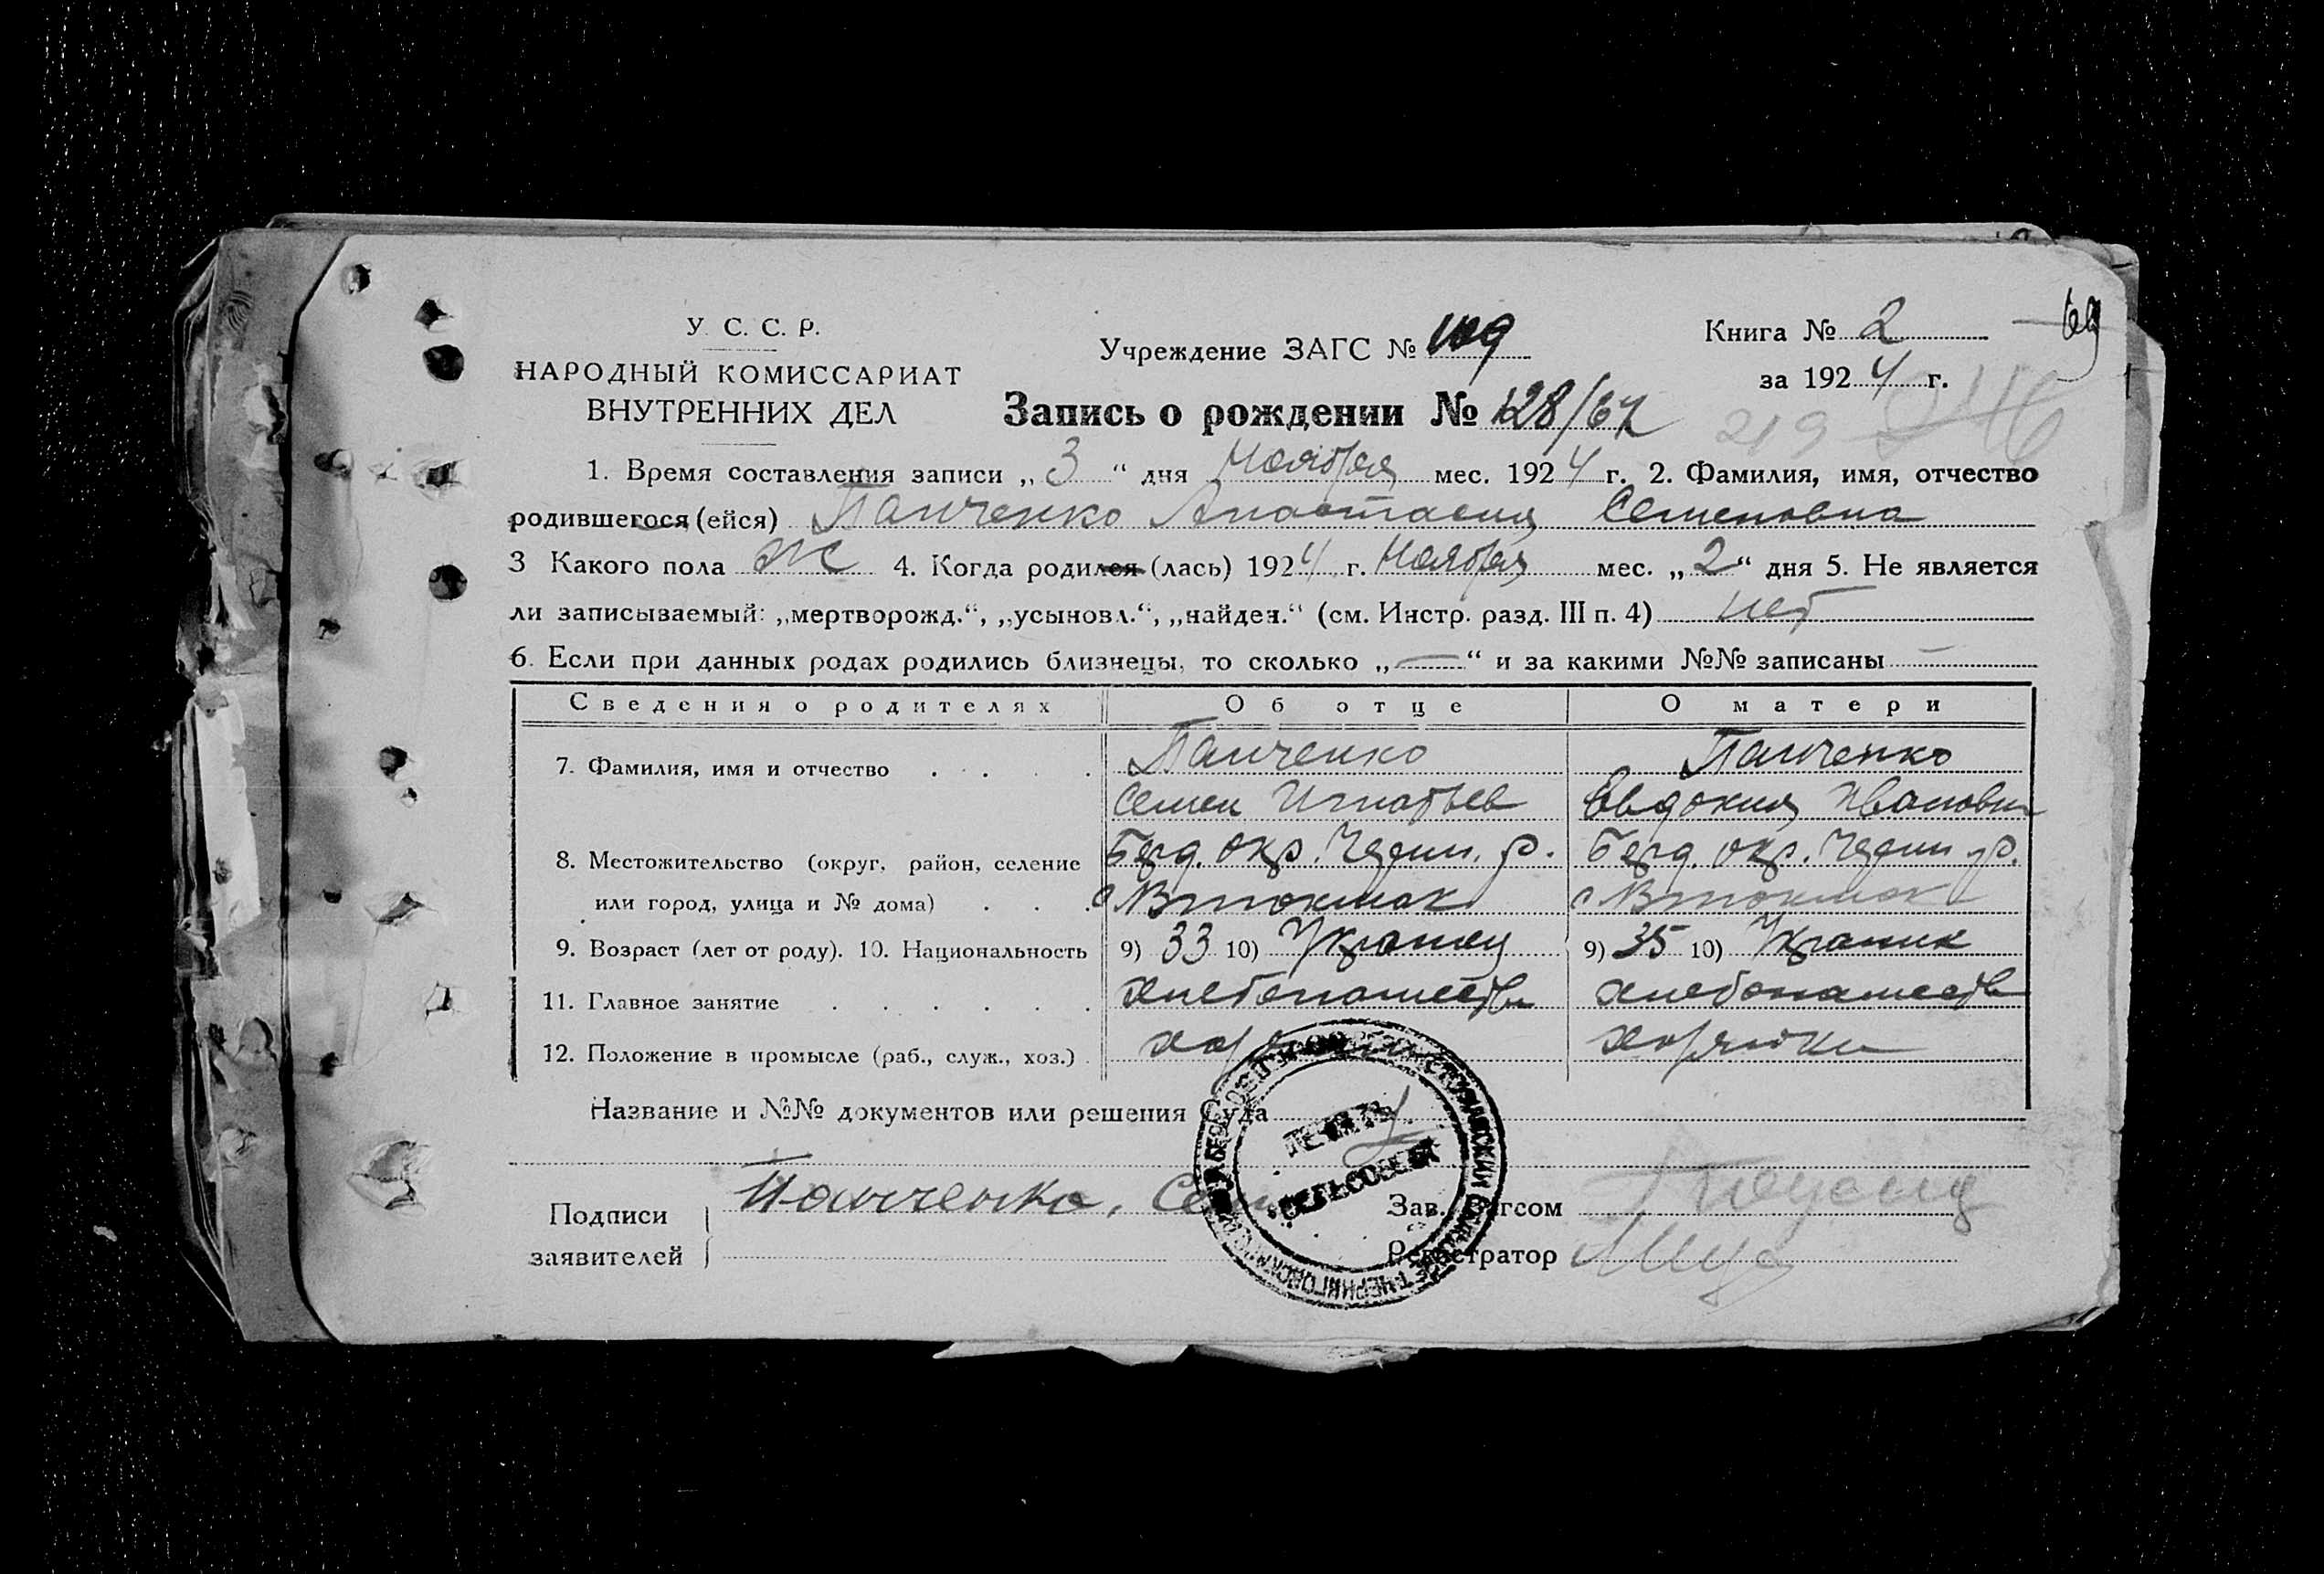 У. С. С. Р.
НАРОДНЫЙ КОМИССАРИАТ
ВНУТРЕННИХ ДЕЛ
Учреждение ЗАГС №
Книга № 2
за 1924 г.
Запись о рождении № 128/67
219
1. Время составления записи „ 3 “ дня Ноября мес. 1924 г. 2. Фамилия, имя, отчество
родившегося (ейся) Панченко Анастасия Семеновна
3 Какого пола Ж 4. Когда родился (лась) 1924 г. Ноября мес. „ 2 “ дня 5. Не является
ли записываемый: „мертворожд.“, „усыновл.“, „найден.“ (см. Инстр. разд. III п. 4) нет
6. Если при данных родах родились близнецы, то сколько „—“ и за какими №№ записаны —
Сведения о родителях Об отце О матери
7. Фамилия, имя и отчество . . . . Панченко Панченко
Семен Игнатьев Евдокия Ивановн
8. Местожительство (округ, район, селение Берд. окр. Черни. р. Берд. окр. Черни р.
или город, улица и № дома) . . . с Втокмак с Втокмак
9. Возраст (лет от роду). 10. Национальность 9) 33 10) Украинец 9) 35 10) Украинк
11. Главное занятие . . . . . . хлебопашеств хлебопашеств
12. Положение в промысле (раб., служ., хоз.) .
Название и №№ документов или решения Суда
Подписи Панченко, Сем Зав. Загсом
заявителей Регистратор
СЕЛЬСОВЕТ